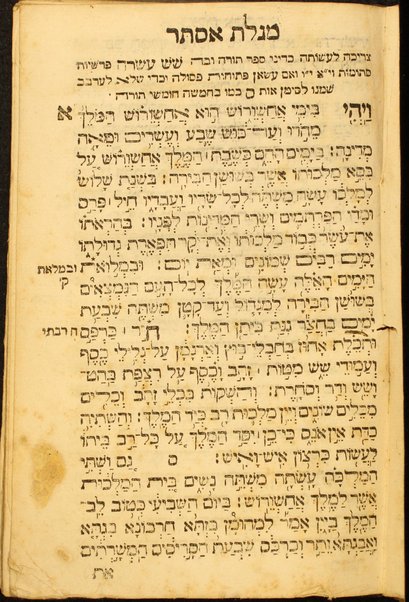 מגלת אסתר
צריכה לעשותה כדיני ספר תורה ובה שש עשרה פרשיות
סתומות וי״א י״ו ואם עשאן פתוחות פסולה וכדי שלא לערבב
שמנו לסימן אות ס כמו בחמשה חומשי תורה :
א
וַיְהִי בִּימֵי אֲחַשְׁוֵרוֹשׁ הוּא אֲחַשְׁוֵרוֹשׁ הַמֹּלֵךְ
מֵהֹדּוּ וְעַד־כּוּשׁ שֶׁבַע וְעֶשְׂרִים וּמֵאָה
מְדִינָה : בַּיָּמִים הָהֵם כְּשֶׁבֶת הַמֶּלֶךְ אֲחַשְׁוֵרוֹשׁ עַל
כִּסֵּא מַלְכוּתוֹ אֲשֶׁר בְּשׁוּשַׁן הַבִּירָה : בִּשְׁנַת שָׁלוֹשׁ
לְמָלְכוֹ עָשָׂה מִשְׁתֶּה לְכָל־שָׂרָיו וַעֲבָדָיו חֵיל פָּרַס
וּמָדַי הַפַּרְתְּמִים וְשָׂרֵי הַמְּדִינוֹת לְפָנָיו : בְּהַרְאֹתוֹ
אֶת־עֹשֶׁר כְּבוֹד מַלְכוּתוֹ וְאֶת־יְקָר תִּפְאֶרֶת גְּדוּלָּתוֹ
יָמִים רַבִּים שְׁמוֹנִים וּמְאַת יוֹם : וּבִמְלוֹאת
ובמלאת ק׳
הַיָּמִים הָאֵלֶּה עָשָׂה הַמֶּלֶךְ לְכָל־הָעָם הַנִּמְצְאִים
בְּשׁוּשַׁן הַבִּירָה לְמִגָּדוֹל וְעַד־קָטָן מִשְׁתֶּה שִׁבְעַת
יָמִים בַּחֲצַר גִּנַּת בִּיתַן הַמֶּלֶךְ : חוּר כַּרְפַּס
ח רבתי
וּתְכֵלֶת אָחוּז בְּחַבְלֵי־בוּץ וְאַרְגָּמָן עַל־גְּלִילֵי כֶסֶף
וְעַמּוּדֵי שֵׁשׁ מִטּוֹת זָהָב וָכֶסֶף עַל רִצְפַת בַּהַט־
וָשֵׁשׁ וְדַר וְסֹחָרֶת : וְהַשְׁקוֹת בִּכְלֵי זָהָב וְכֵלִים
מִכֵּלִים שׁוֹנִים וְיֵין מַלְכוּת רָב כְּיַד הַמֶּלֶךְ : וְהַשְּׁתִיָּה
כַדָּת אֵין אֹנֵס כִּי־כֵן יִסַּד הַמֶּלֶךְ עַל כָּל־רַב בֵּיתוֹ
לַעֲשׂוֹת כִּרְצוֹן אִישׁ־וָאִישׁ : ס גַּם וַשְׁתִּי
הַמַּלְכָּה עָשְׂתָה מִשְׁתֵּה נָשִׁים בֵּית הַמַּלְכוּת
אֲשֶׁר לַמֶּלֶךְ אֲחַשְׁוֵרוֹשׁ : בַּיּוֹם הַשְּׁבִיעִי כְּטוֹב לֵב־
הַמֶּלֶךְ בַּיָּיִן אָמַר לִמְהוּמָן בִּזְּתָא חַרְבוֹנָא בִּגְתָא
וַאֲבַגְתָא זֵתַר וְכַרְכַּס שִׁבְעַת הַסָּרִיסִים הַמְשָׁרְתִים
את